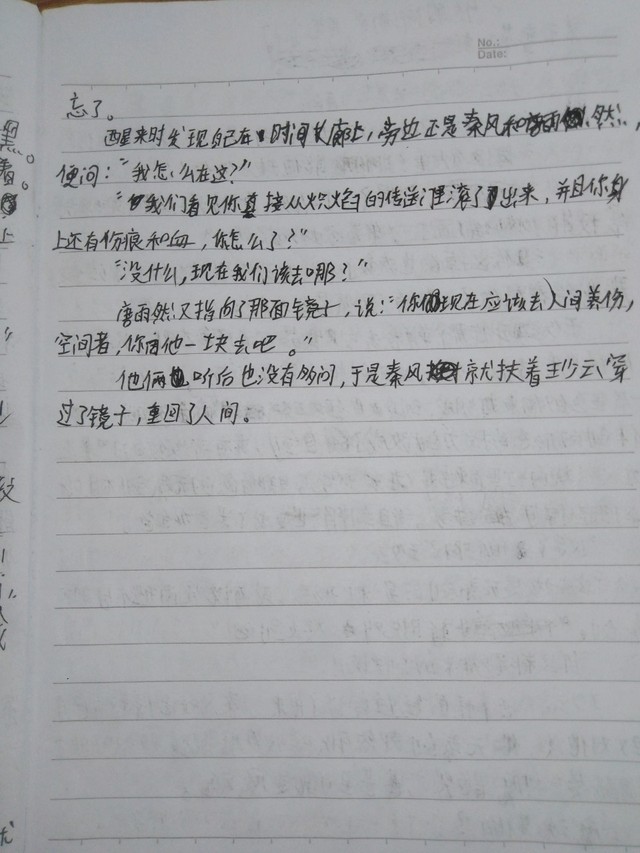 No.:
Date:
忘了。
醒来时发现自己在时间长廊上,旁边还是秦风和唐雨然,
便问:“我怎么在这?”
“我们看见你直接从火焰的传送门里滚了出来,并且你身
上还有伤痕和血,你怎么了?”
“没什么,现在我们该去哪?”
唐雨然又指向了那面镜子,说:“你现在应该去人间养伤,
空间者,你同他一块去吧。”
他俩听后也没有多问,于是秦风就扶着王少云穿
过了镜子,重回了人间。
黑。
着。
上